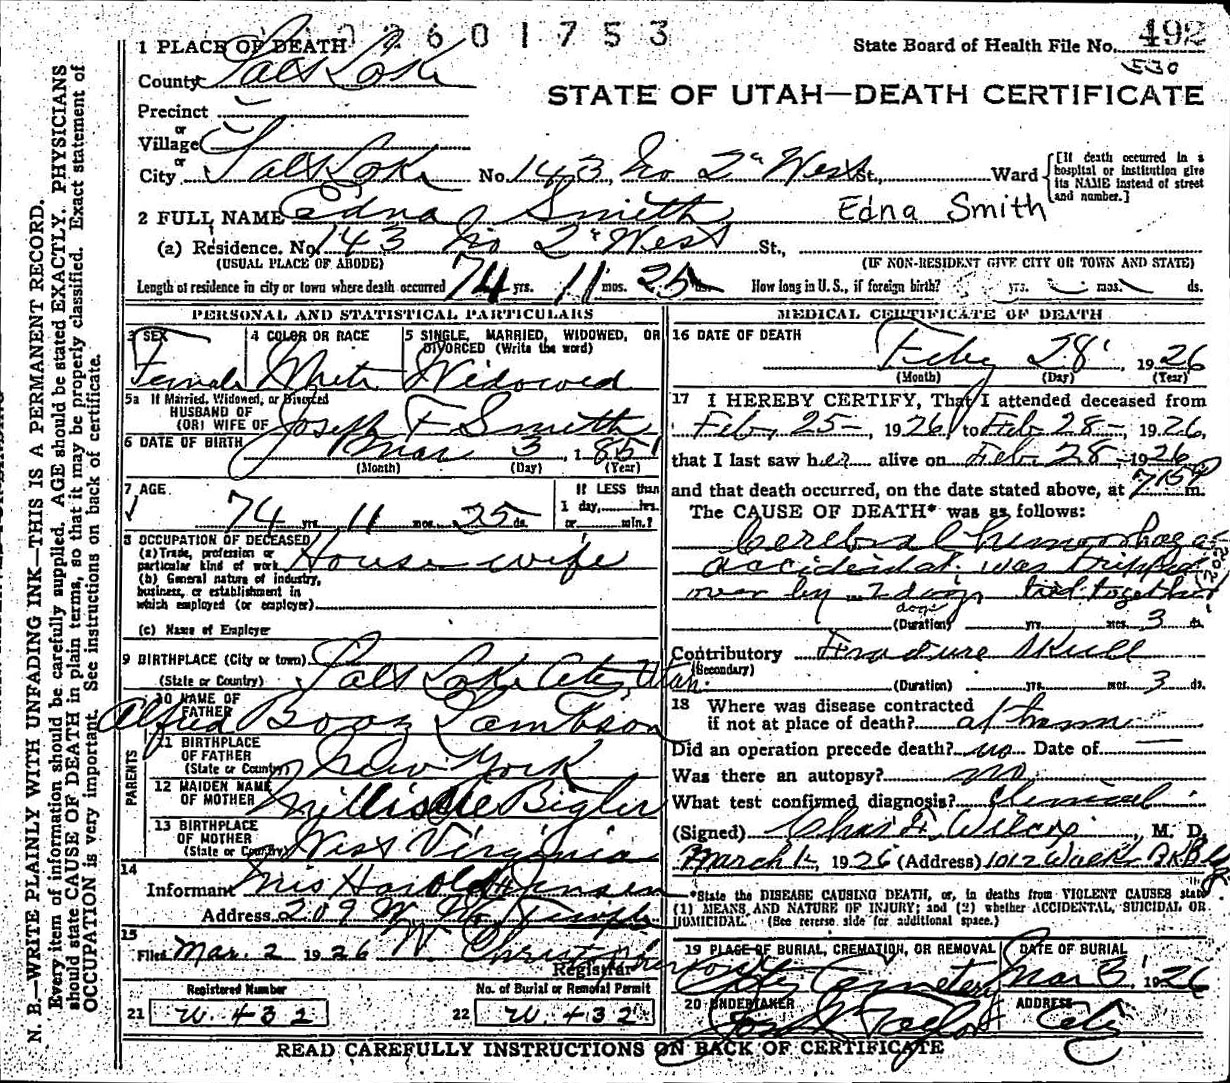 2601753
State Board of Health File No. 492
530
STATE OF UTAH—DEATH CERTIFICATE
1 PLACE OF DEATH
County Salt Lake
Precinct
or
Village
or
City Salt Lake No. 143 No 2d West St., Ward
[If death occurred in a hospital or institution give its NAME instead of street and number.]
2 FULL NAME Edna Smith Edna Smith
(a) Residence. No. 143 No 2d West St.,
(USUAL PLACE OF ABODE) (IF NON-RESIDENT GIVE CITY OR TOWN AND STATE)
Length of residence in city or town where death occurred 74 yrs. 11 mos. 25 ds. How long in U.S., if foreign birth? yrs. mos. ds.
PERSONAL AND STATISTICAL PARTICULARS
3 SEX 4 COLOR OR RACE 5 SINGLE, MARRIED, WIDOWED, OR DIVORCED (Write the word)
Female White Widowed
5a If Married, Widowed, or Divorced
HUSBAND OF
(OR) WIFE OF Joseph F Smith
6 DATE OF BIRTH Mar 3, 1851
(Month) (Day) (Year)
7 AGE
74 yrs. 11 mos. 25 ds.
If LESS than
1 day, hrs.
or min.?
8 OCCUPATION OF DECEASED
(a) Trade, profession or
particular kind of work House wife
(b) General nature of industry,
business, or establishment in
which employed (or employer)
(c) Name of Employer
9 BIRTHPLACE (City or town)
(State or Country) Salt Lake City, Utah.
10 NAME OF
FATHER Alfred Booz Lambson
PARENTS
11 BIRTHPLACE
OF FATHER
(State or Country) New York
12 MAIDEN NAME
OF MOTHER Bigler
13 BIRTHPLACE
OF MOTHER
(State or Country) West Virginia
14
Informant Mrs Harold Jensen
Address 209 W. No. Temple
15
Filed Mar. 2 1926 W. Christopherson
Registrar
Registered Number No. of Burial or Removal Permit
21 W. 432 22 W. 432
MEDICAL CERTIFICATE OF DEATH
16 DATE OF DEATH
Feby 28, 1926
(Month) (Day) (Year)
17 I HEREBY CERTIFY, That I attended deceased from
Feb, 25-, 1926, to Feb 28-, 1926,
that I last saw her alive on Feb. 28, 1926
and that death occurred, on the date stated above, at 715P m.
The CAUSE OF DEATH* was as follows:
Cerebral hemorrhage
accident. was tripped
over by 2 dogs tied together
dogs
(Duration) yrs. mos. 3 ds.
Contributory Fracture Skull
(Secondary)
(Duration) yrs. mos. 3 ds.
18 Where was disease contracted
if not at place of death? at home
Did an operation precede death? no Date of
Was there an autopsy? no
What test confirmed diagnosis? Clinical
(Signed) Chas F. Wilcox, M. D.
March 1, 1926 (Address) 1012 Walker Bk Bldg
*State the DISEASE CAUSING DEATH, or, in deaths from VIOLENT CAUSES state
(1) MEANS AND NATURE OF INJURY; and (2) whether ACCIDENTAL, SUICIDAL OR
HOMICIDAL. (See reverse side for additional space.)
19 PLACE OF BURIAL, CREMATION, OR REMOVAL DATE OF BURIAL
City Cemetery Mar 3, 1926
20 UNDERTAKER ADDRESS
Taylor City
READ CAREFULLY INSTRUCTIONS ON BACK OF CERTIFICATE
N. B.—WRITE PLAINLY WITH UNFADING INK—THIS IS A PERMANENT RECORD.
Every item of information should be carefully supplied. AGE should be stated EXACTLY. PHYSICIANS
should state CAUSE OF DEATH in plain terms, so that it may be properly classified. Exact statement of
OCCUPATION is very important. See instructions on back of certificate.